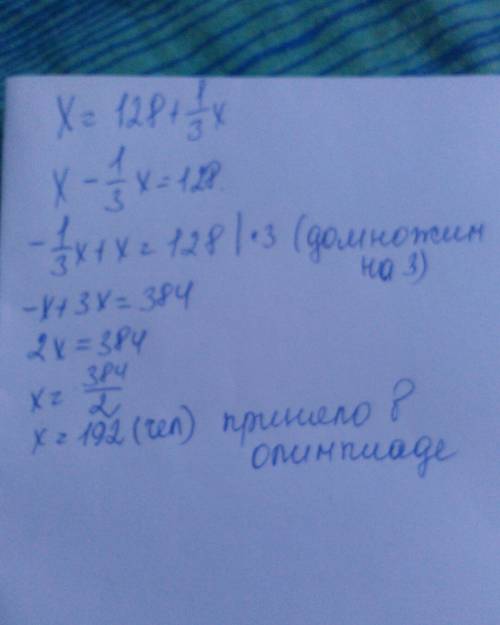 x = 128 + 1/3 x
x - 1/3 x = 128.
-1/3 x + x = 128 | • 3 (домножим
на 3)
-x + 3x = 384
2x = 384
x = 384/2
x = 192 (чел) приняло в
олимпиаде